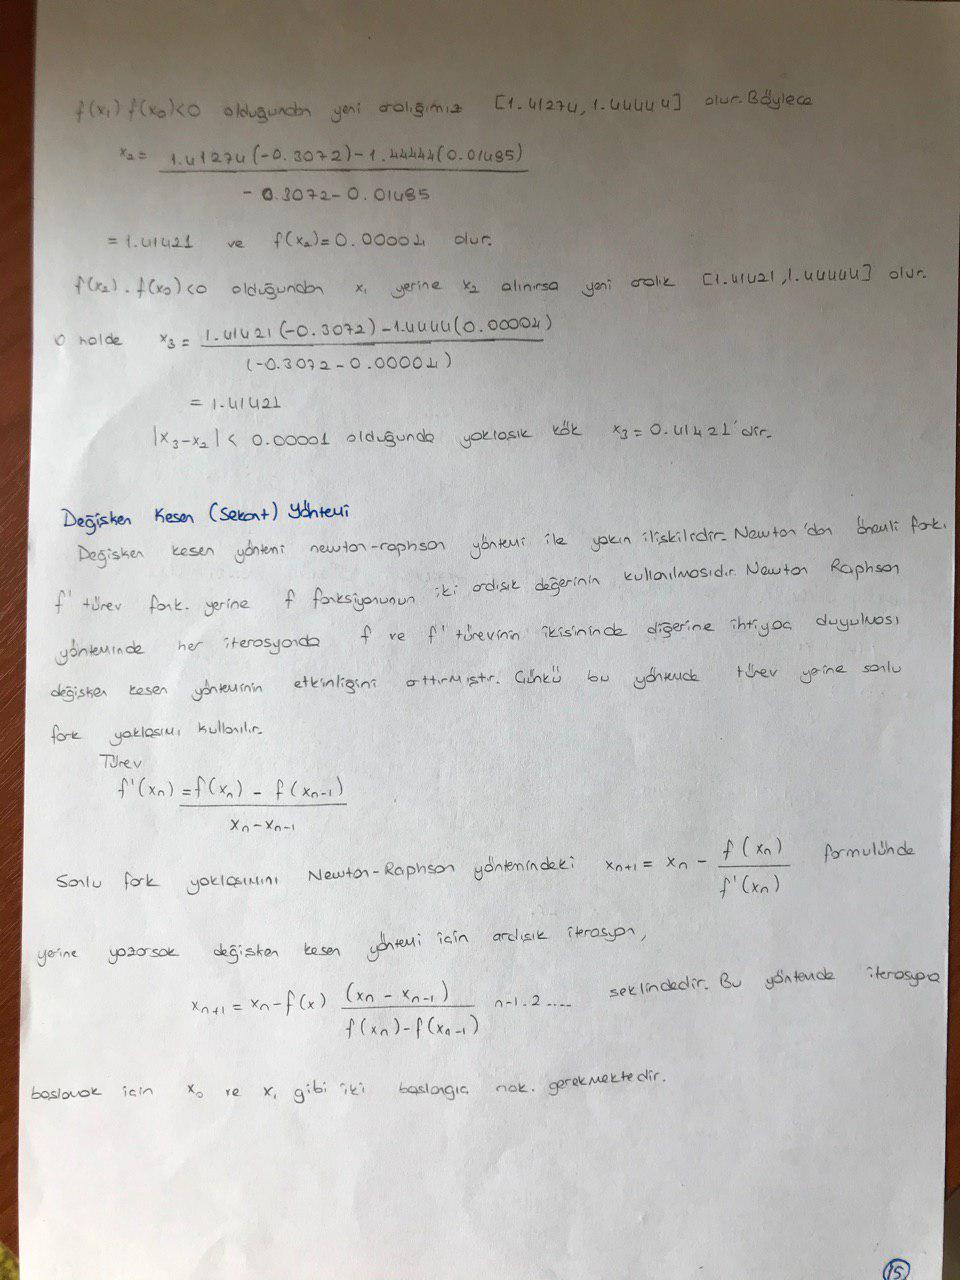 f(x₁) f(x₀)<0 olduğundan yeni aralığımız [1.41274, 1.44444] olur. Böylece
x₂ = 1.41274(-0.3072)-1.44444(0.01485)
-0.3072-0.01485
= 1.41421 ve f(x₂)=0.00001 olur.
f(x₂).f(x₀)<0 olduğundan x₁ yerine x₂ alınırsa yeni aralık [1.41421,1.44444] olur.
O halde x₃ = 1.41421(-0.3072)-1.4444(0.00001)
(-0.3072-0.00001)
= 1.41421
|x₃-x₂| < 0.00001 olduğunda yaklaşık kök x₃=0.41421'dir.
Değişken Kesen (Sekant) Yöntemi
Değişken kesen yöntemi newton-raphson yöntemi ile yakın ilişkilidir. Newton'dan önemli farkı
f' türev fonk. yerine f fonksiyonunun iki ardışık değerinin kullanılmasıdır. Newton Raphson
yönteminde her iterasyonda f ve f' türevinin ikisininde diğerine ihtiyaç duyulması
değişken kesen yönteminin etkinliğini arttırmıştır. Çünkü bu yöntemde türev yerine sonlu
fark yaklaşımı kullanılır.
Türev
f'(xₙ) = f(xₙ) - f(xₙ₋₁)
xₙ-xₙ₋₁
Sonlu fark yaklaşımını Newton-Raphson yöntemindeki xₙ₊₁ = xₙ - f(xₙ) / f'(xₙ) formülünde
yerine yazarsak değişken kesen yöntemi için ardışık iterasyon,
xₙ₊₁ = xₙ-f(x) (xₙ - xₙ₋₁) / f(xₙ)-f(xₙ₋₁) n-1.2.... şeklindedir. Bu yöntemde iterasyona
başlamak için x₀ ve x₁ gibi iki başlangıç nok. gerekmektedir.
15